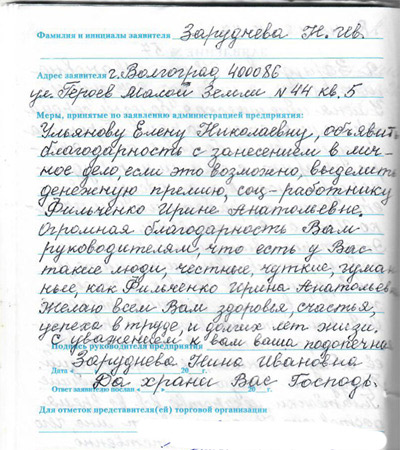 Фамилия и инициалы заявителя Заруднева Н.
Адрес заявителя г. Волгоград 400086
ул. Героев Малой Земли N 44 кв. 5
Меры, принятые по заявлению администрацией предприятия:
Ульянову Елену Николаевну, объявить
благодарность с занесением в лич-
ное дело, если это возможно, выделить
денежную премию, соц-работнику
Фильченко Ирине Анатольевне.
Огромная благодарность Вам
руководителям, что есть у Вас
такие люди, честные, чуткие, гуман
ные, как Фильченко Ирина Анатольев
Желаю всем Вам здоровья, счастья,
успеха в труде, и долгих лет жизни.
С уважением к вам ваша подопечна
Подпись руководителя предприятия
Заруднева Нина Ивановна
Дата « » 20 г.
Да храни Вас Господь.
Ответ заявителю послан « » 20 г.
Для отметок представителя(ей) торговой организации